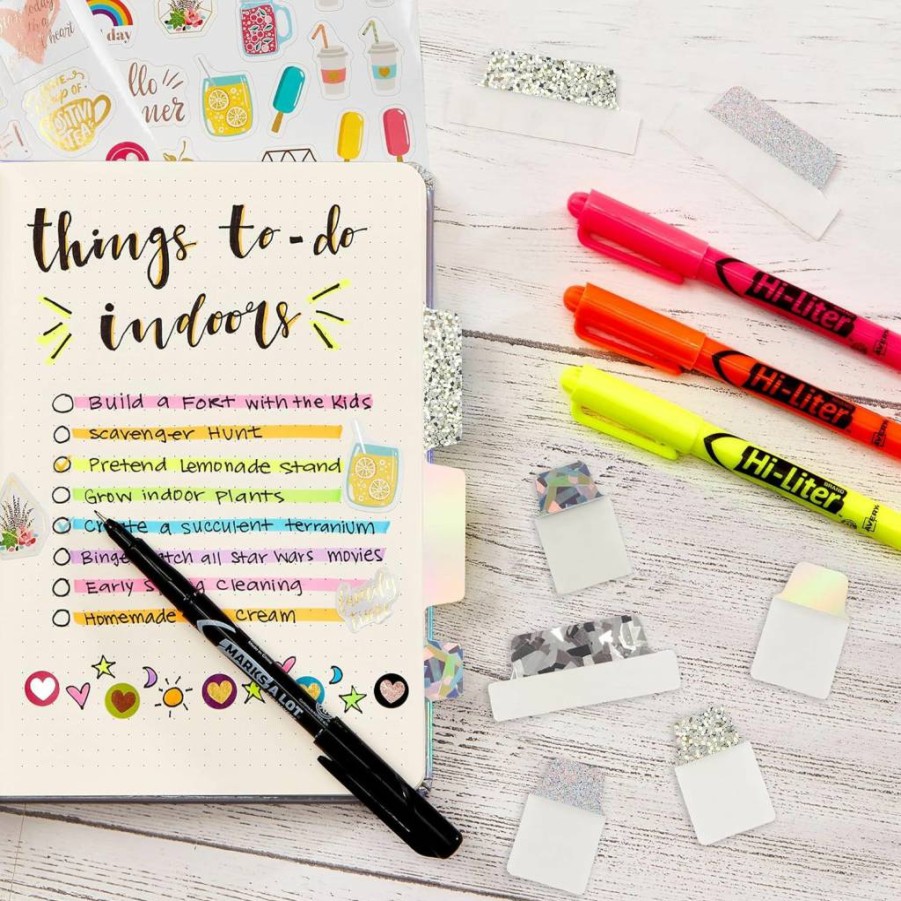 day
llo
mer
things to-do
indoors
Build a FORT with the Kids
scavenger Hunt
Pretend Lemonade stand
Grow indoor Plants
Create a succulent terranium
Binge all star wars movies
Early Cleaning
Homemade cream
MARKS A LOT
Hi-Liter
AVERY
Hi-Liter
AVERY
Hi-Liter
BRAND
AVERY